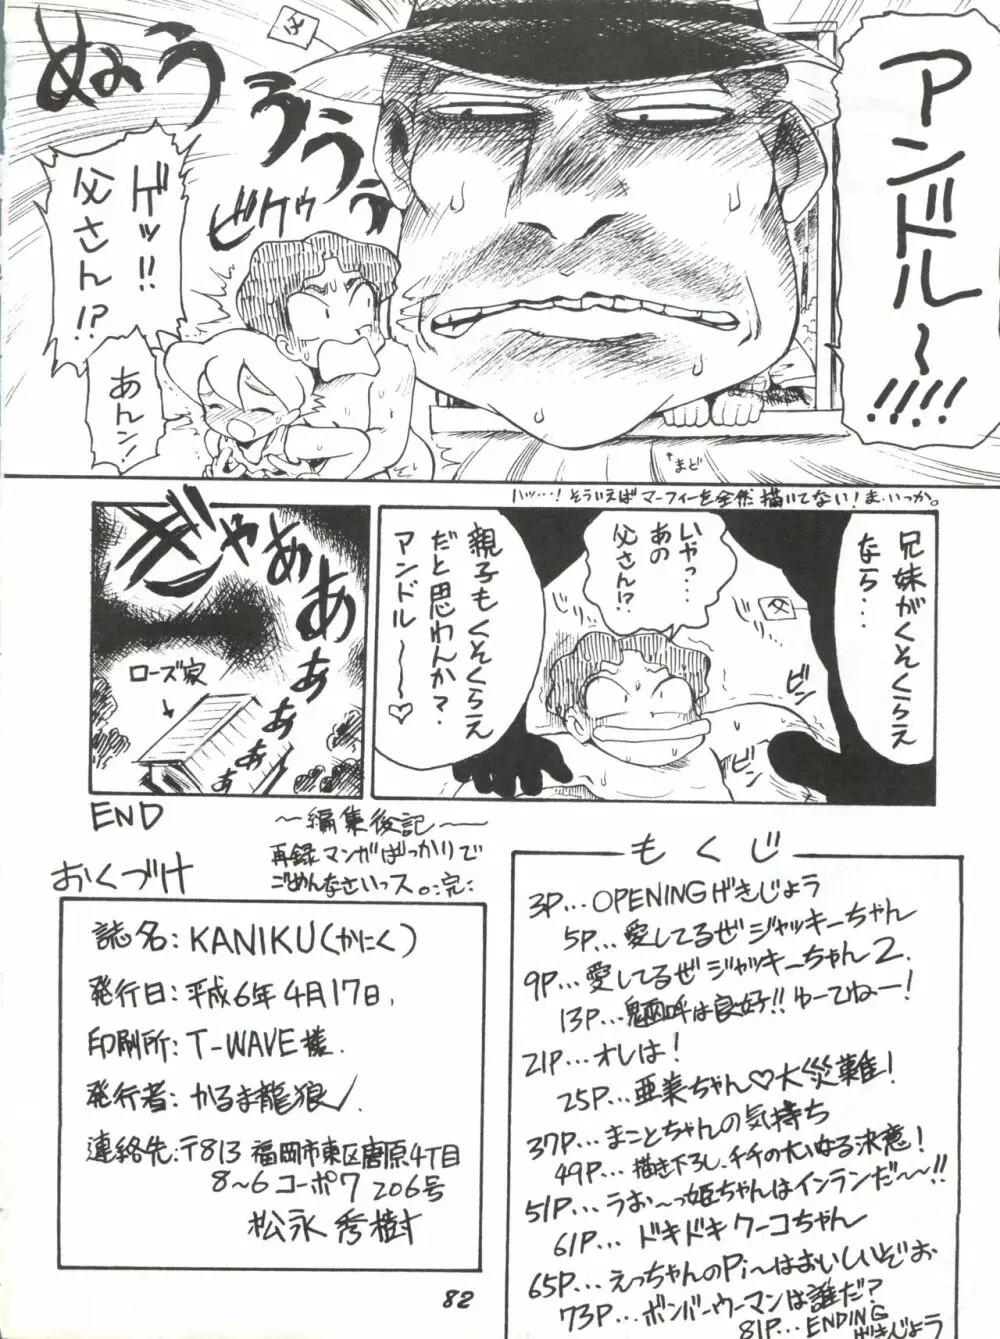 アンドル〜!!!!
父
ぬぉうううう
ビクゥ
ゲッ!!
父さん!?
あんン!
↑まど
ハッ…!そういえばマーフィーを全然描いてない!ま、いっか。
兄妹がくそくらえ
なら…
いやっ…
あの
父さん!?
父
親子もくそくらえ
だと思わんか?
アンドル〜〜♡
ビン
ビン
ぎゃあぁあぁあぁ
ローズ家
END
〜編集後記〜
再録マンガばっかりで
ごめんなさいっス。:完:
おくづけ
誌名:KANIKU(かにく)
発行日:平成6年4月17日、
印刷所:T-WAVE様.
発行者:かるま龍狼
連絡先:〒813 福岡市東区唐原4丁目
8〜6コーポワ206号
松永秀樹
もくじ
3P…OPENINGげきじょう
5P…愛してるぜジャッキーちゃん
9P…愛してるぜジャッキーちゃん2.
13P…魍呼は良好!!ゆーてねー!
21P…オレは!
25P…亜美ちゃん♡大災難!
37P…まことちゃんの気持ち
49P…描き下ろし、チチの大いなる決意!
51P…うお〜っ姫ちゃんはインランだ〜〜!!
61P…ドキドキクーコちゃん
65P…えっちゃんのPi〜はおいしいぞぉ
73P…ボンバーウーマンは誰だ?
81P…ENDING
げきじょう
82